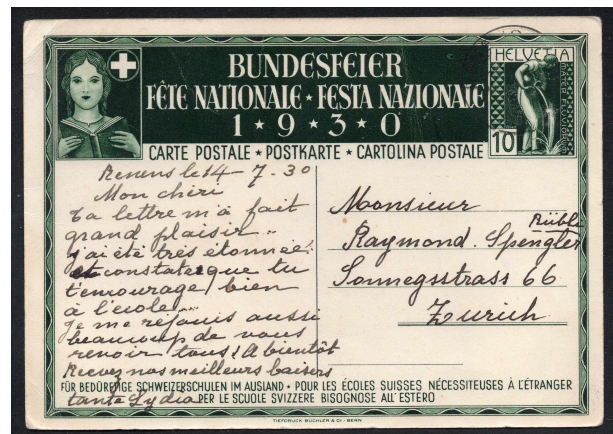 BUNDESFEIER
FÊTE NATIONALE ★ FESTA NAZIONALE
1 ★ 9 ★ 3 ★ 0
HELVETIA
MATER FLUVIORUM
10
CARTE POSTALE ★ POSTKARTE ★ CARTOLINA POSTALE
Renens le 14 - 7. 30
Mon chéri
Ta lettre m'a fait
grand plaisir..
j'ai été très étonnée
et constate que tu
t'encourage bien
à l'école..
Je me réjouis aussi
beaucoup de vous
revoir tous! A bientôt
Recevez nos meilleurs baisers
tante Lydia
Monsieur
Raymond. Spengler
Sonnegsstrass 66
Zurich
FÜR BEDÜRFTIGE SCHWEIZERSCHULEN IM AUSLAND • POUR LES ÉCOLES SUISSES NÉCESSITEUSES À L'ÉTRANGER
PER LE SCUOLE SVIZZERE BISOGNOSE ALL'ESTERO
TIEFDRUCK BÜCHLER & CI - BERN